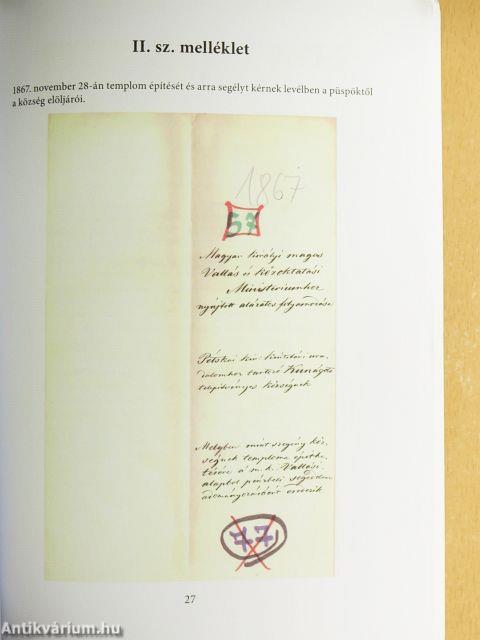 II. sz. melléklet
1867. november 28-án templom építését és arra segélyt kérnek levélben a püspöktől
a község elöljárói.
1867
57
Magyar királyi magas
Vallás és közoktatási
Ministeriumhoz
nyújtott alázatos folyamodása
Pétskai kir. kintstári ura
dalomhoz tartozó Kunágota
telepitvényes községnek
Melyben mint szegény köz
ségnek temploma építhe
tésére a m. k. Vallási
alapból pénzbeli segedelem
adományozásáért esedezik
77
27
Antikvárium.hu